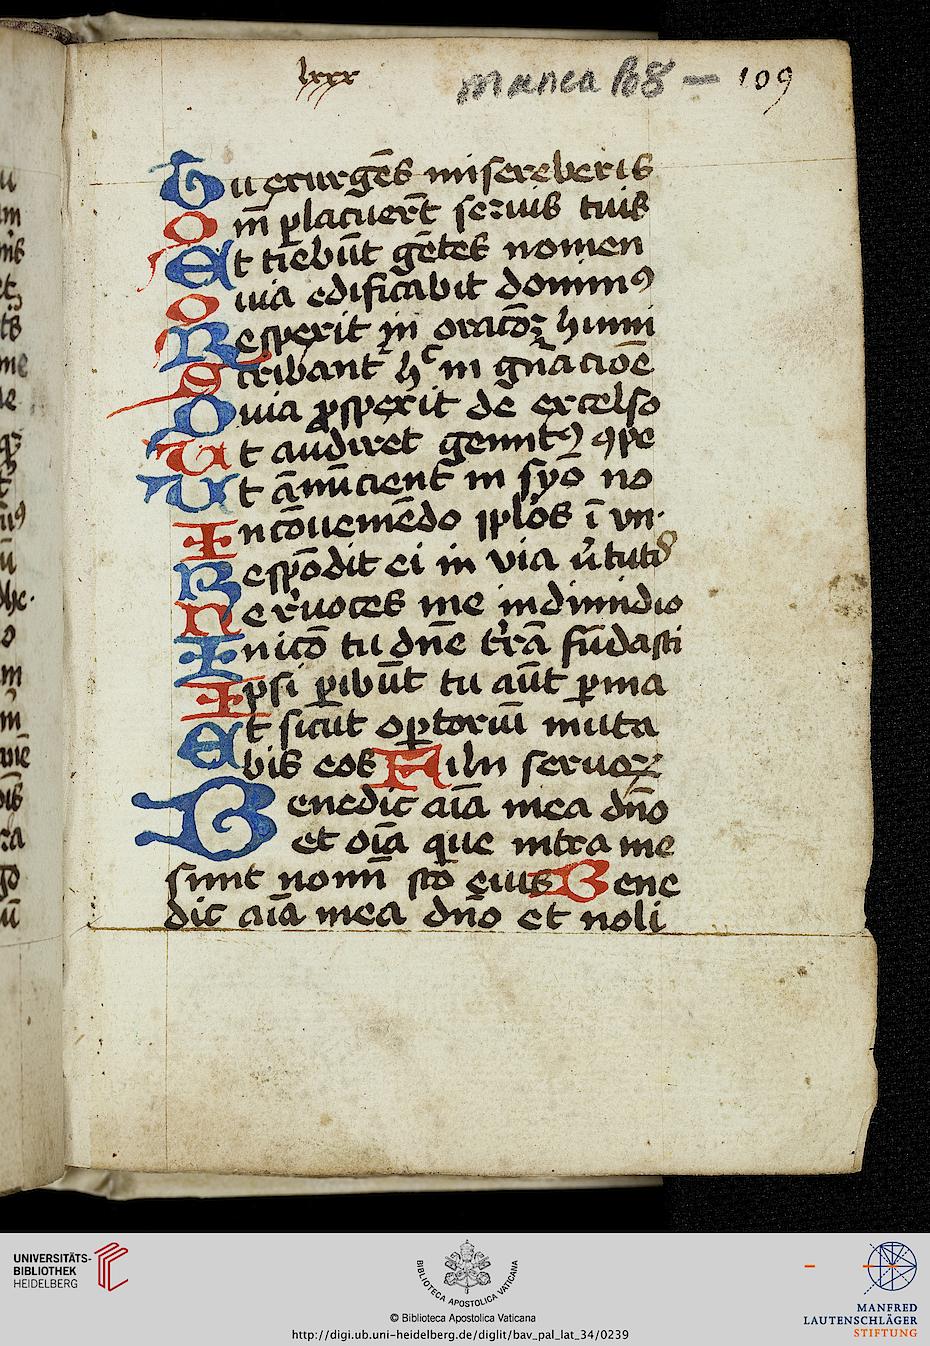 lxxx
manca 108 — 109
Tu exurgēs misereberis
Om̄ placuer̄t seruis tuis
Et tiebūt gētes nomen
Quia edificabit dominꝰ
Respexit in oracōꝫ humi
Scribant̄ hᶜ in gn̄acioē
Quia ꝓspexit de excelso
Ut audiret gemitꝰ ꝯpe
Ut ānūcient in syō no
In cōueniēdo pplōs ī vn·
Respōdit ei in via v̄tutꝭ
Ne reuoces me in dimidio
Inicō tu dn̄e tr̄ā fūdasti
Ipsi ꝑibūt tu aūt ꝑma
Et sicut oꝑtoriū muta
bis eos Filii seruoꝝ
Benedic aīa mea dn̄o
et oīa que intra me
sunt nomī sc̄o eius Bene
dic aīa mea dn̄o et noli
UNIVERSITÄTS-
BIBLIOTHEK
HEIDELBERG
BIBLIOTECA APOSTOLICA VATICANA
© Biblioteca Apostolica Vaticana
http://digi.ub.uni-heidelberg.de/diglit/bav_pal_lat_34/0239
MANFRED
LAUTENSCHLÄGER
STIFTUNG